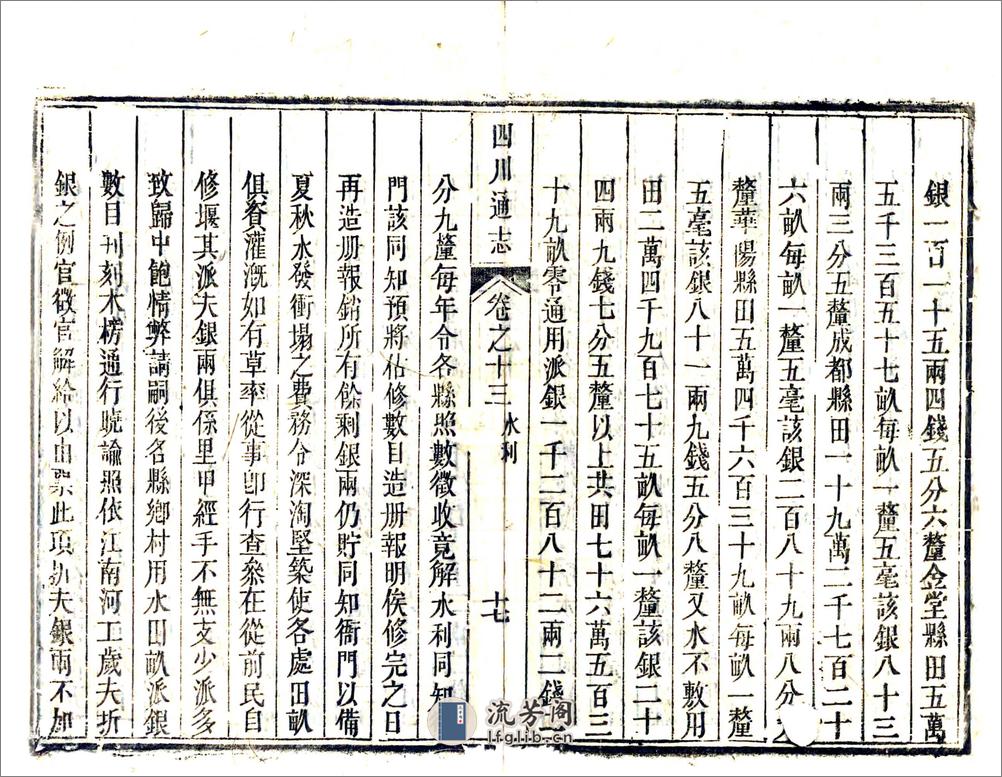 銀一百一十五兩四錢五分六釐金堂縣田五萬
五千三百五十七畝每畝一釐五毫該銀八十三
兩三分五釐成都縣田一十九萬二千七百二十
六畝每畝一釐五毫該銀二百八十九兩八分
釐華陽縣田五萬四千六百三十九畝每畝一釐
五毫該銀八十一兩九錢五分八釐又水不敷用
田二萬四千九百七十五畝每畝一釐該銀二十
四兩九錢七分五釐以上共田七十六萬五百三
十九畝零通用派銀一千二百八十二兩二錢
四川通志 卷之十三 水利 十七
分九釐每年令各縣照數徵收竟解水利同知
門該同知預將估修數目造册報明俟修完之日
再造册報銷所有餘剩銀兩仍貯同知衙門以備
夏秋水發衝塌之費務令深淘堅築使各處田畝
俱資灌溉如有草率從事卽行查叅在從前民自
修堰其派夫銀兩俱係里甲經手不無支少派多
致歸中飽情弊請嗣後各縣鄉村用水田畝派銀
數目刊刻木榜通行曉諭照依江南河工歲夫折
銀之例官徵官解給以由票此項折夫銀兩不加
流芳阁
lfglib.cn